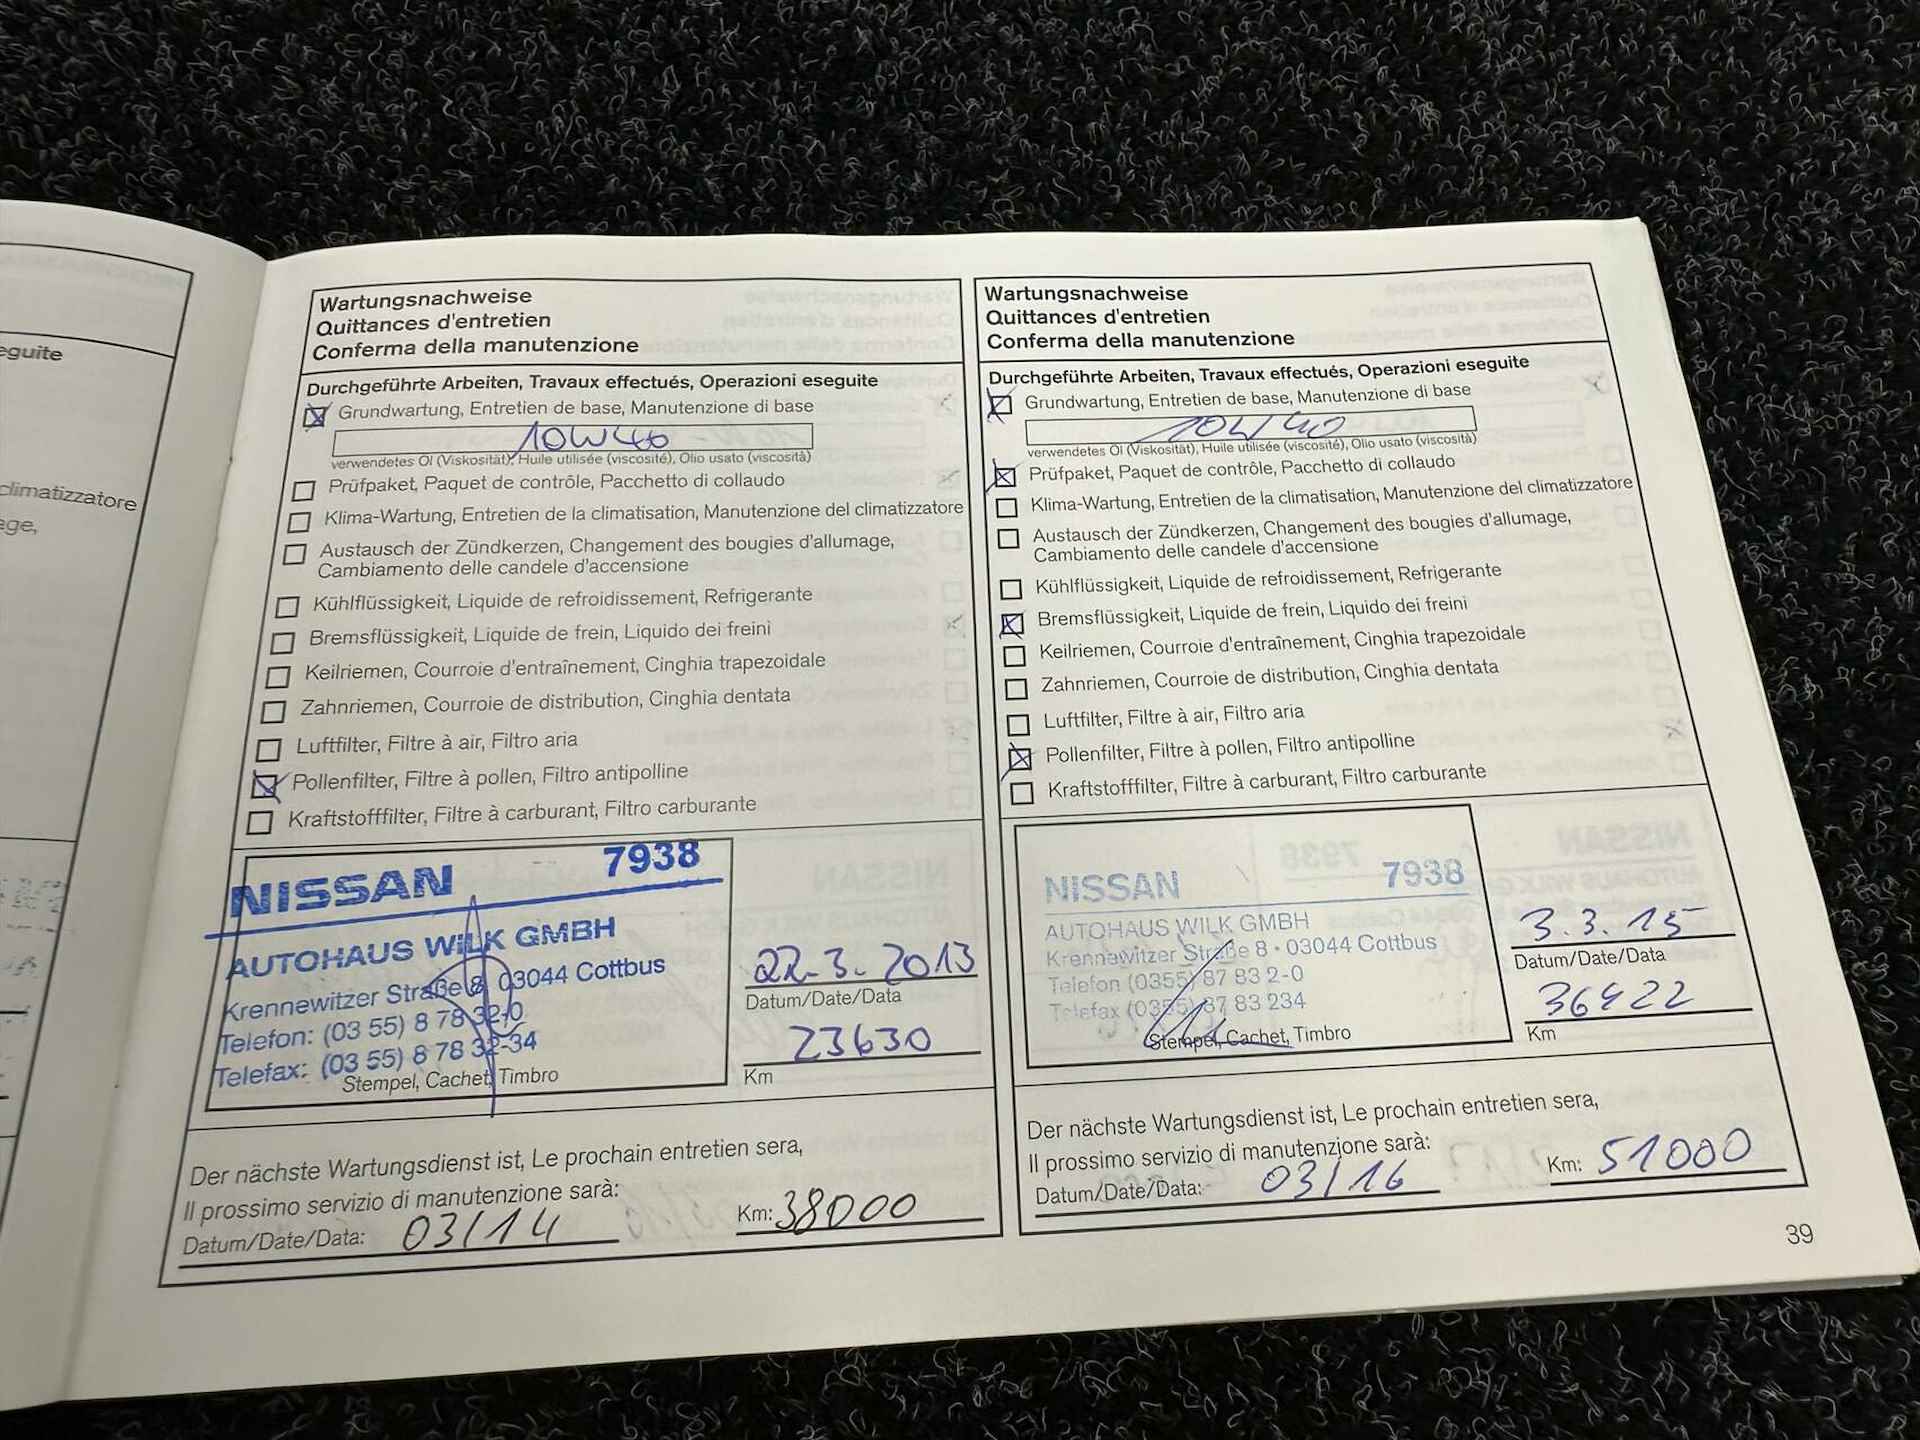 eguite
climatizzatore
age,
Wartungsnachweise
Quittances d'entretien
Conferma della manutenzione
Durchgeführte Arbeiten, Travaux effectués, Operazioni eseguite
Grundwartung, Entretien de base, Manutenzione di base
10W40
verwendetes Öl (Viskosität), Huile utilisée (viscosité), Olio usato (viscosità)
Prüfpaket, Paquet de contrôle, Pacchetto di collaudo
Klima-Wartung, Entretien de la climatisation, Manutenzione del climatizzatore
Austausch der Zündkerzen, Changement des bougies d'allumage,
Cambiamento delle candele d'accensione
Kühlflüssigkeit, Liquide de refroidissement, Refrigerante
Bremsflüssigkeit, Liquide de frein, Liquido dei freini
Keilriemen, Courroie d'entraînement, Cinghia trapezoidale
Zahnriemen, Courroie de distribution, Cinghia dentata
Luftfilter, Filtre à air, Filtro aria
Pollenfilter, Filtre à pollen, Filtro antipolline
Kraftstofffilter, Filtre à carburant, Filtro carburante
NISSAN 7938
AUTOHAUS WILK GMBH
Krennewitzer Straße 8, 03044 Cottbus
Telefon: (03 55) 8 78 32-0
Telefax: (03 55) 8 78 32-34
Stempel, Cachet, Timbro
22.3.2013
Datum/Date/Data
23630
Km
Der nächste Wartungsdienst ist, Le prochain entretien sera,
Il prossimo servizio di manutenzione sarà:
Datum/Date/Data: 03/14 Km: 38000
Wartungsnachweise
Quittances d'entretien
Conferma della manutenzione
Durchgeführte Arbeiten, Travaux effectués, Operazioni eseguite
Grundwartung, Entretien de base, Manutenzione di base
10W40
verwendetes Öl (Viskosität), Huile utilisée (viscosité), Olio usato (viscosità)
Prüfpaket, Paquet de contrôle, Pacchetto di collaudo
Klima-Wartung, Entretien de la climatisation, Manutenzione del climatizzatore
Austausch der Zündkerzen, Changement des bougies d'allumage,
Cambiamento delle candele d'accensione
Kühlflüssigkeit, Liquide de refroidissement, Refrigerante
Bremsflüssigkeit, Liquide de frein, Liquido dei freini
Keilriemen, Courroie d'entraînement, Cinghia trapezoidale
Zahnriemen, Courroie de distribution, Cinghia dentata
Luftfilter, Filtre à air, Filtro aria
Pollenfilter, Filtre à pollen, Filtro antipolline
Kraftstofffilter, Filtre à carburant, Filtro carburante
NISSAN 7938
AUTOHAUS WILK GMBH
Krennewitzer Straße 8 · 03044 Cottbus
Telefon (0355) 87 83 2-0
Telefax (0355) 87 83 234
Stempel, Cachet, Timbro
3.3.15
Datum/Date/Data
36422
Km
Der nächste Wartungsdienst ist, Le prochain entretien sera,
Il prossimo servizio di manutenzione sarà:
Datum/Date/Data: 03/16 Km: 51000
39